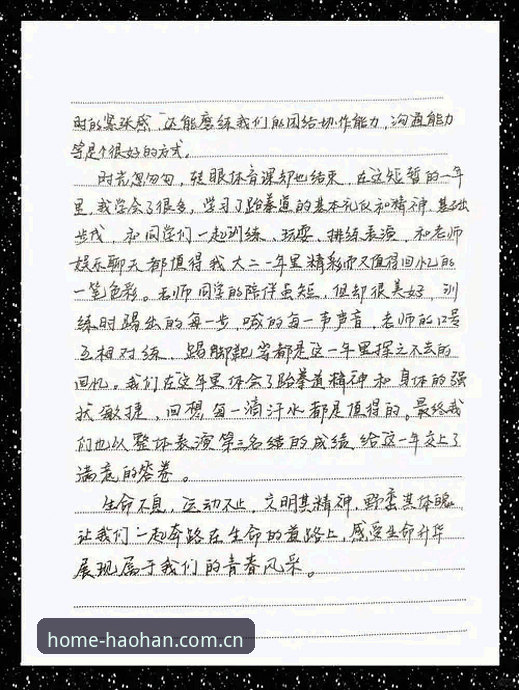 时的紧张感，还能磨练我们的团结协作能力，沟通能力
等是个很好的方式。
时光忽匆匆，转眼体育课却也结束，在这短暂的一年
里，我学会了很多，学习了跆拳道的基本礼仪和精神，基础
步伐，和同学们一起训练、玩耍、排练表演，和老师
娱乐聊天都值得我大二一年里精彩而又值得回忆的
一笔色彩。老师同学的陪伴虽短，但却很美好，训
练时踢出的每一步，喊的每一声声音，老师的口号
互相对练、踢脚靶容都是这一年里挥之不去的
回忆。我们在这年里体会了跆拳道精神和身体的强
状敏捷，回想每一滴汗水都是值得的。最终我
们也以整体表演第三名的成绩，给这一年交上了
满意的答卷。
生命不息，运动不止，文明其精神，野蛮其体魄
让我们一起奔跑在生命的道路上，感受生命升华
展现属于我们的青春风采。
home-haohan.com.cn